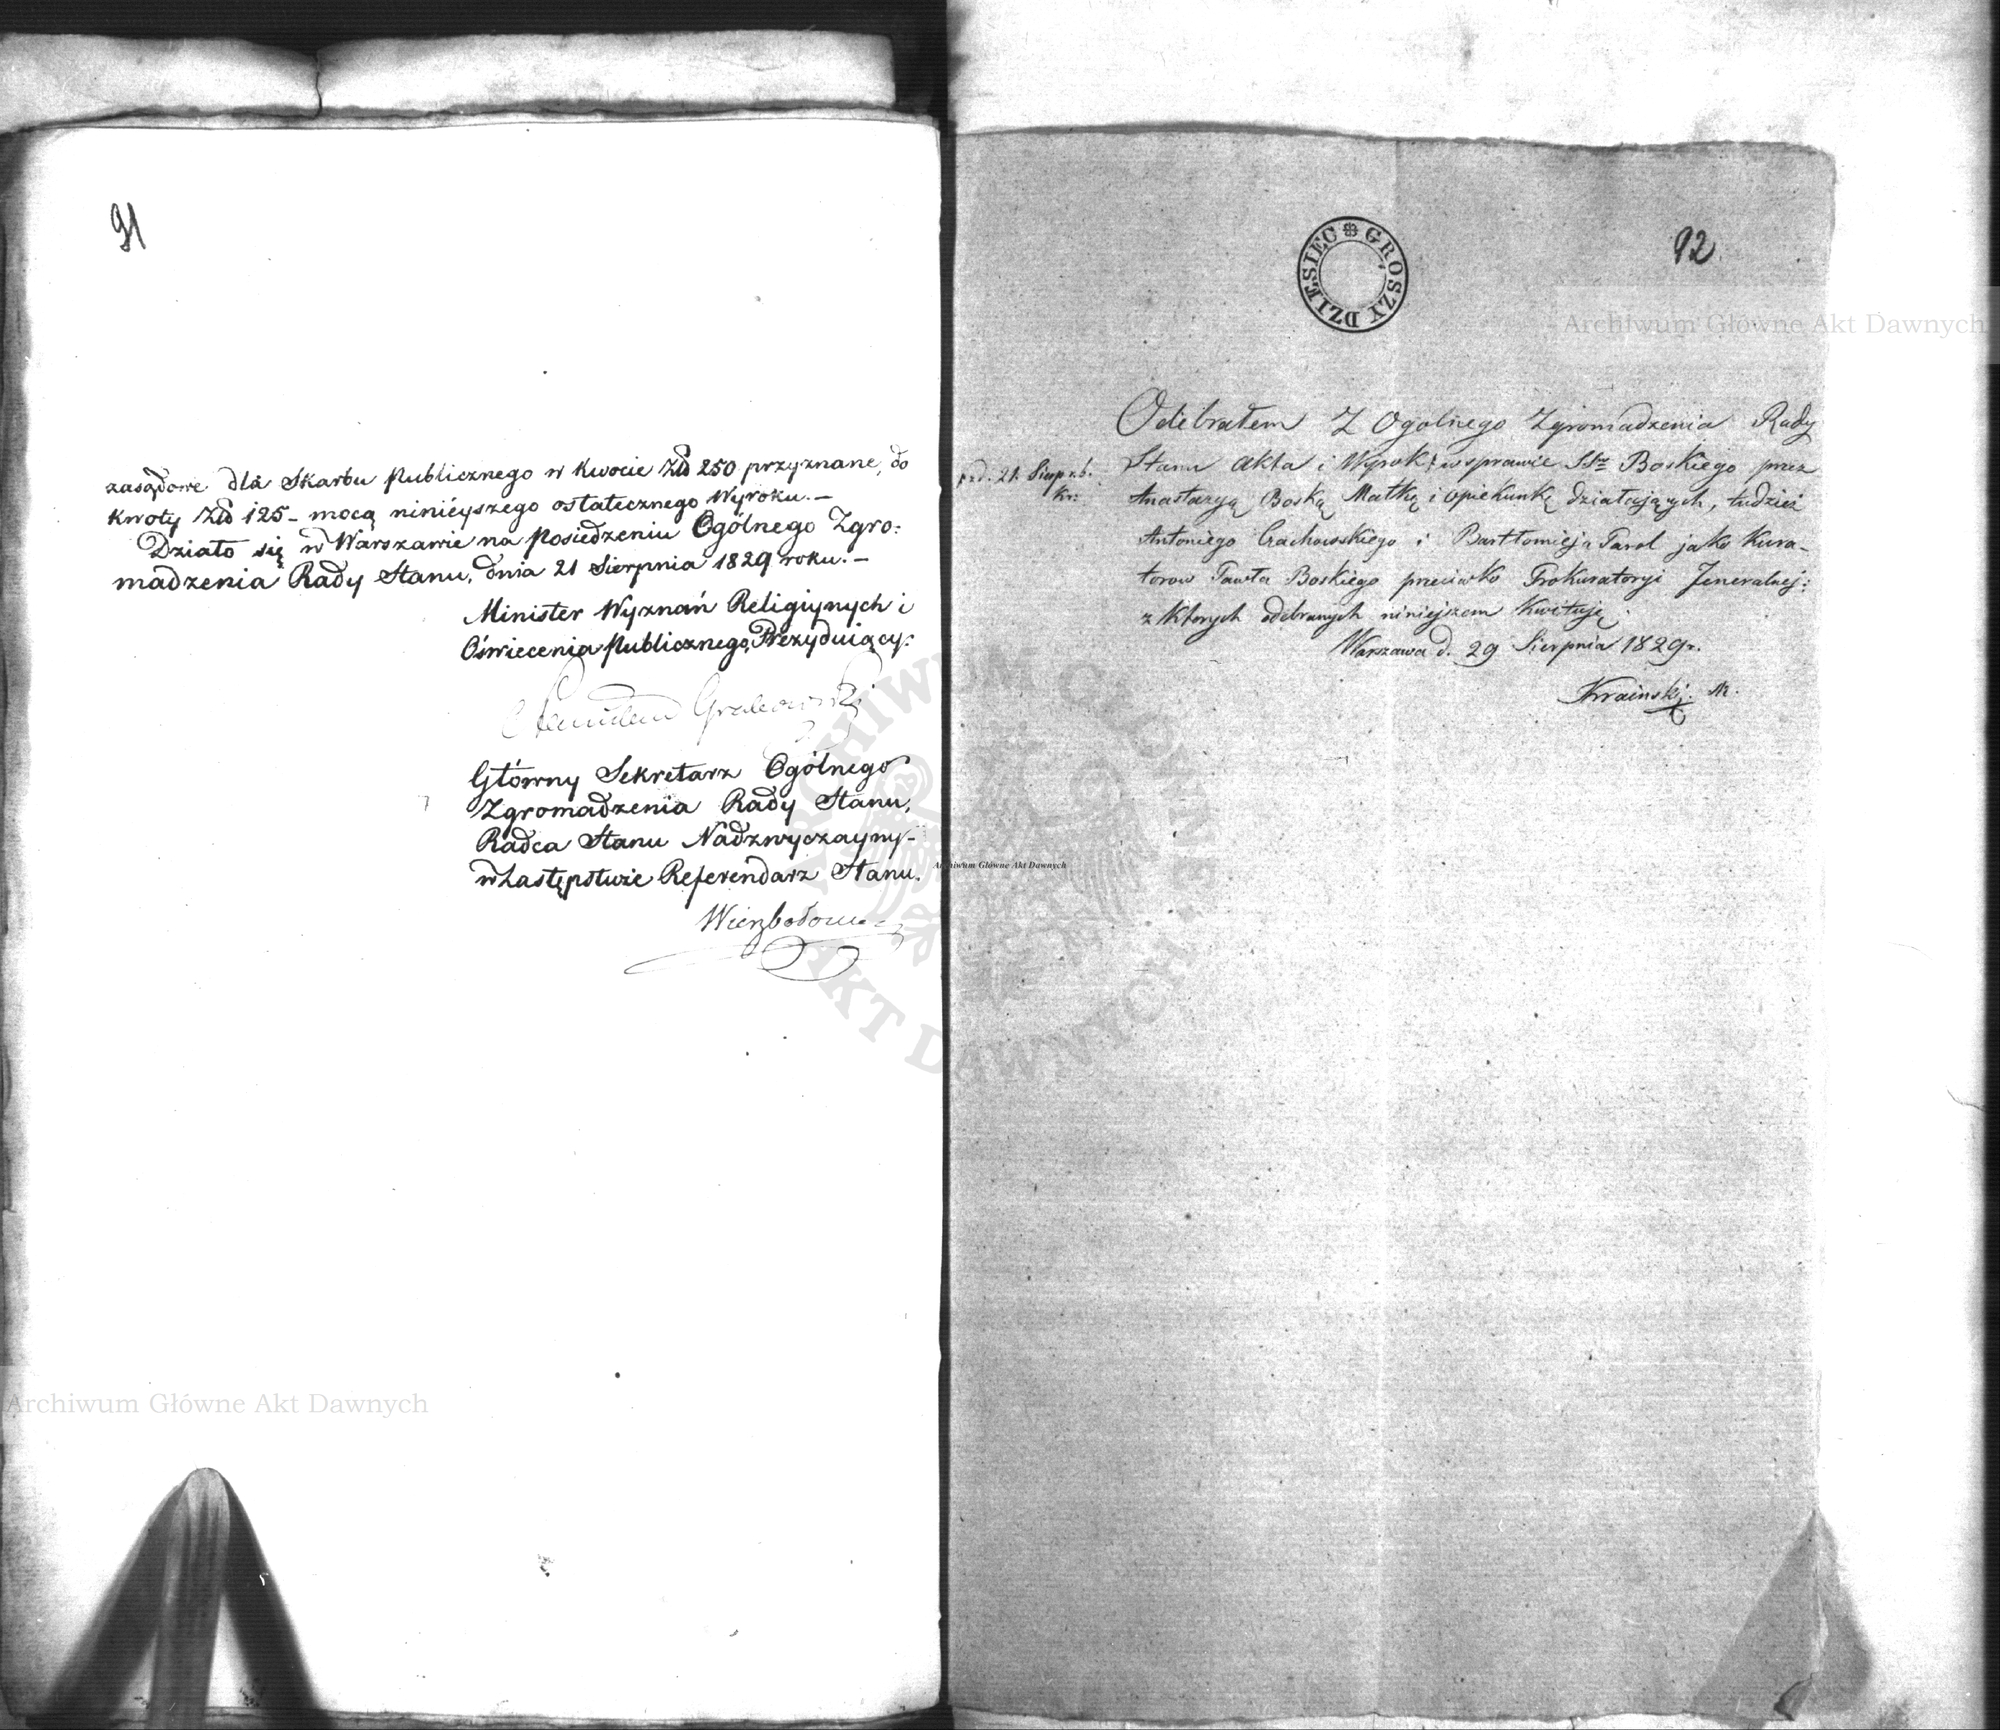 91
zasądzone dla Skarbu Publicznego w kwocie Zł 250 przyznane, do
kwoty Złł 125 - mocą ninieyszego ostatecznego Wyroku. -
Działo się w Warszawie na posiedzeniu Ogólnego Zgro:
madzenia Rady Stanu, dnia 21 Sierpnia 1829 roku. -
Minister Wyznań Religiynych i
Oświecenia Publicznego, Prezyduiący:
Stanisław Grabowski
Główny Sekretarz Ogólnego
Zgromadzenia Rady Stanu,
Radca Stanu Nadzwyczayny -
w Zastępstwie Referendarz Stanu.
Wierzbołowicz
Archiwum Główne Akt Dawnych
92
GROSZY DZIESIEC
Archiwum Główne Akt Dawnych
Odebrałem z Ogolnego Zgromadzenia Rady
Stanu Akta i Wyrok w sprawie SSrow Boskiego przez
z d. 21. Sierp. r. b.
Anastazyą Boską Matkę i opiekunkę działających, tudzież
Antoniego Czachowskiego i Bartłomieja Parol jako Kura-
torow Pawła Boskiego przeciwko Prokuratoryi Jeneralnej:
z ktorych odebranych niniejszem kwituję.
Warszawa d. 29 Sierpnia 1829 r.
Krainski. M.
Archiwum Główne Akt Dawnych
ARCHIWUM GŁÓWNE AKT DAWNYCH